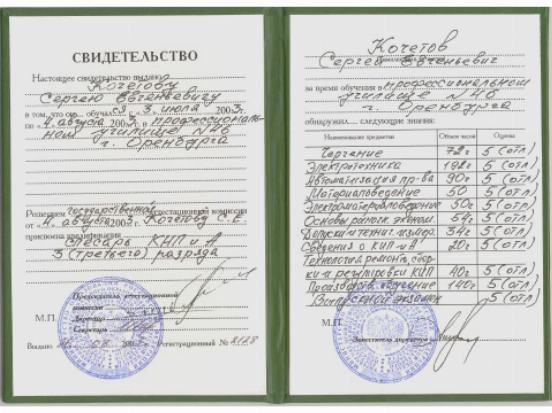 СВИДЕТЕЛЬСТВО
Настоящее свидетельство выдано
Кочетову
Сергею Евгеньевичу
в том, что он обучался с 3 июля 2003г.
по 4 августа 2003г. в профессиональ-
ном училище №46
г. Оренбурга
Решением Государственной аттестационной комиссии
от 4 августа 2003г. Кочетову С.Е.
присвоена квалификация
Слесарь КИП и А
3 (третьего) разряда
Председатель аттестационной
комиссии
Директор
Секретарь
М.П.
Выдано Регистрационный №
Кочетов
Сергей Евгеньевич
за время обучения в профессиональном
училище №46
г. Оренбурга
обнаружил следующие знания:
Наименование предметов Объем часов Оценка
Черчение 72ч 5 (отл)
Электротехника 5 (отл)
Автоматизация пр-ва 90ч 5 (отл)
Материаловедение 50 5 (отл)
Электроматериаловедение 50ч 5 (отл)
Основы рыночн. эконом. 54ч 5 (отл)
Допуски и технич. измер. 34ч 5 (отл)
Сведения о КИП и А 20ч 5 (отл)
Технология ремонта, сбор-
ки и регулировки КИП 40ч 5 (отл)
Производств. обучение 140ч 5 (отл)
Выпускной экзамен 5 (отл)
М.П.
Заместитель директора